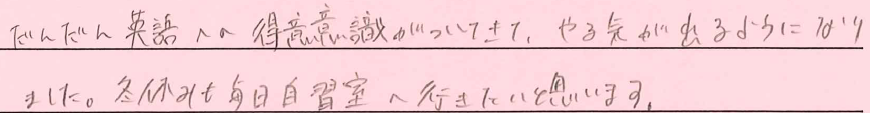 だんだん英語への得意意識がついてきて、やる気が出るようになり
ました。冬休みも毎日自習室へ行きたいと思います。